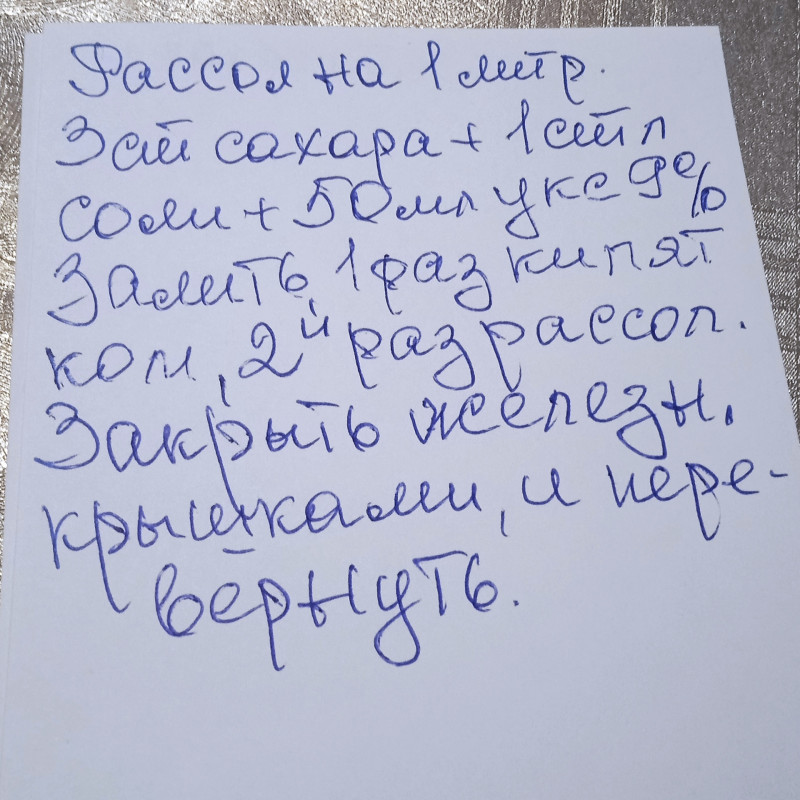 Рассол на 1 литр.
3 ст сахара + 1 ст л
соли + 50 мл укс 9%
Залить, 1 раз кипят
ком, 2й раз рассол.
Закрыть железн.
крышками, и пере-
вернуть.